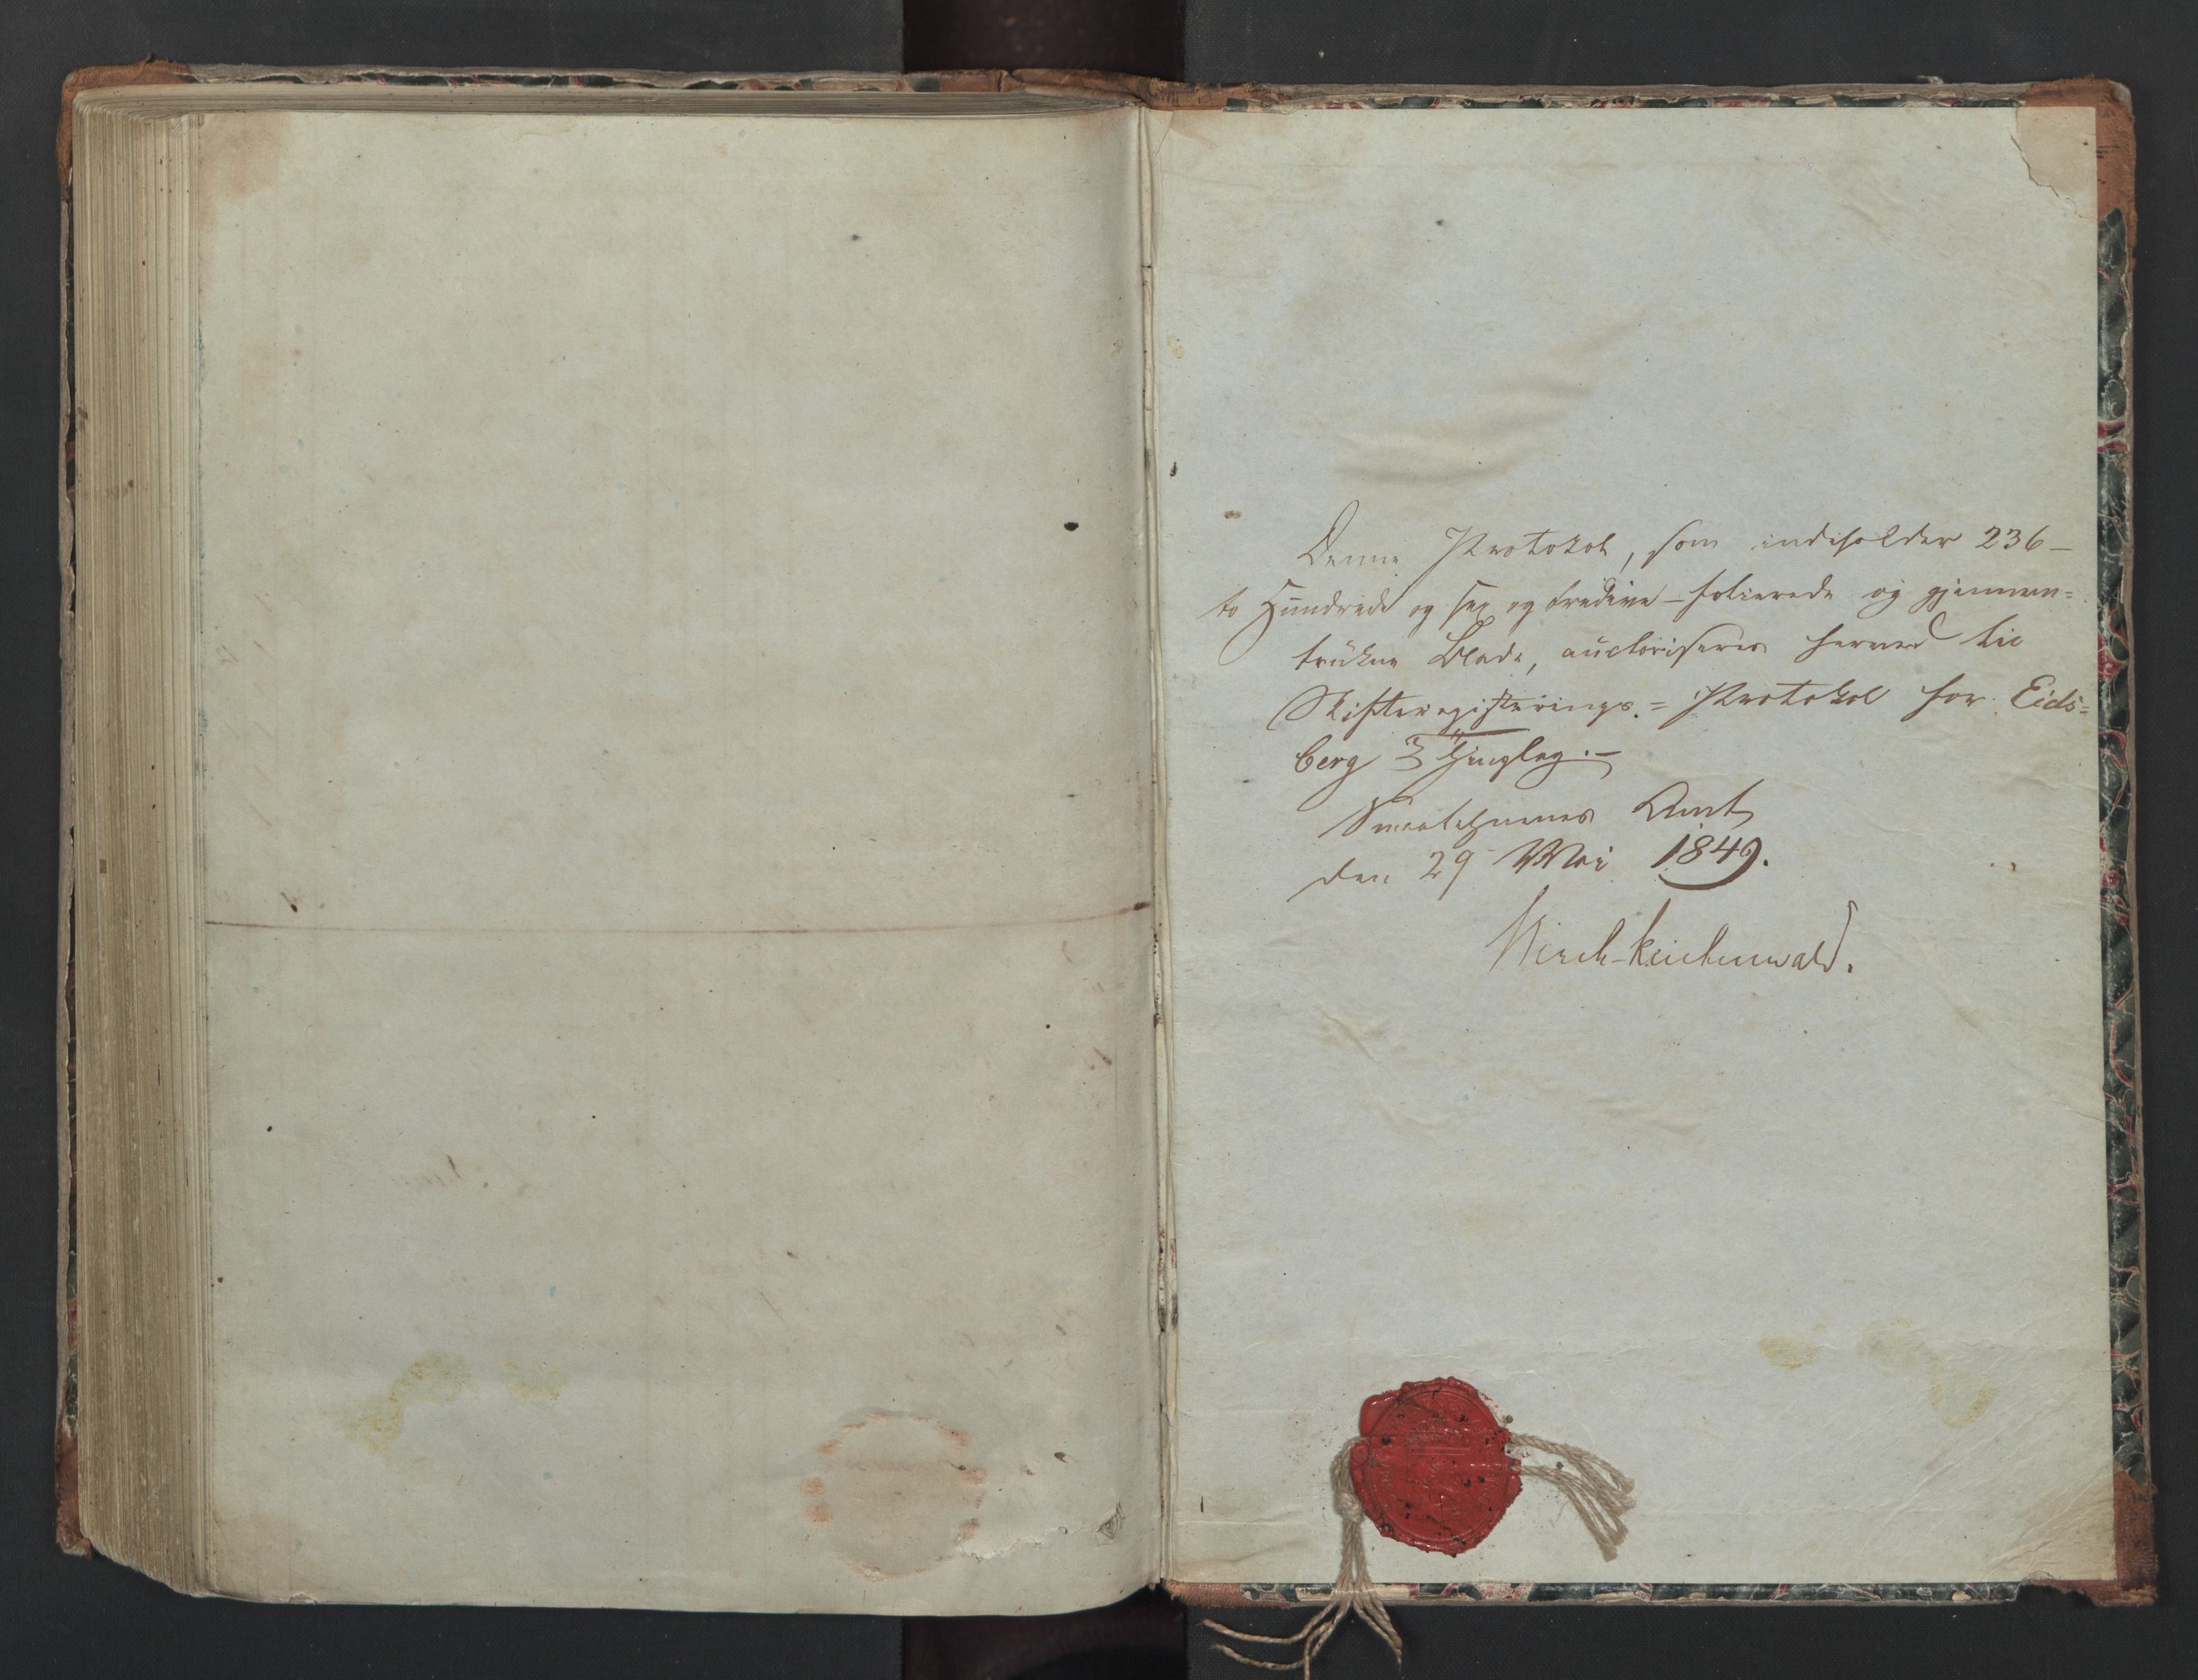 Denne Protokol, som indeholder 236 –
to Hundrede og sex og tredive – folierede og gjennem=
trukne Blade, auctoriseres herved til
Skifteregistrerings.= Protokol for Eids=
berg Thinglag. –
Smaalehnenes Amt
den 29 Mai 1849.
Birch-Reichenwald.